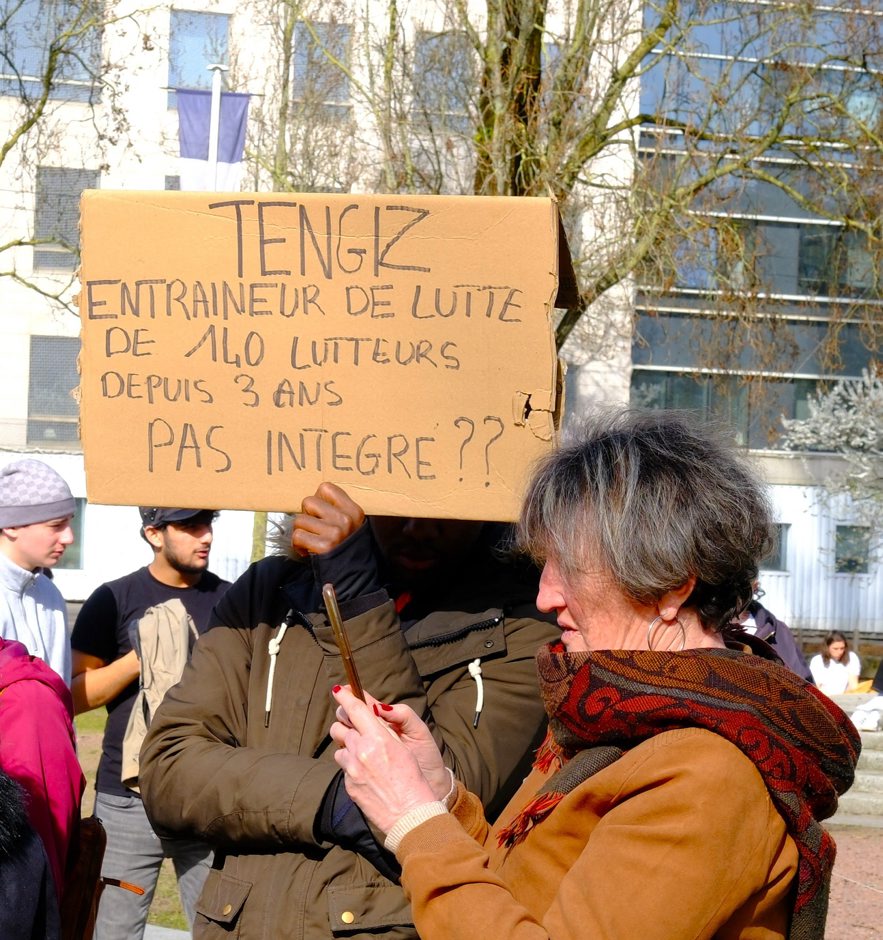 TENGIZ
ENTRAINEUR DE LUTTE
DE 140 LUTTEURS
DEPUIS 3 ANS
PAS INTEGRE ??